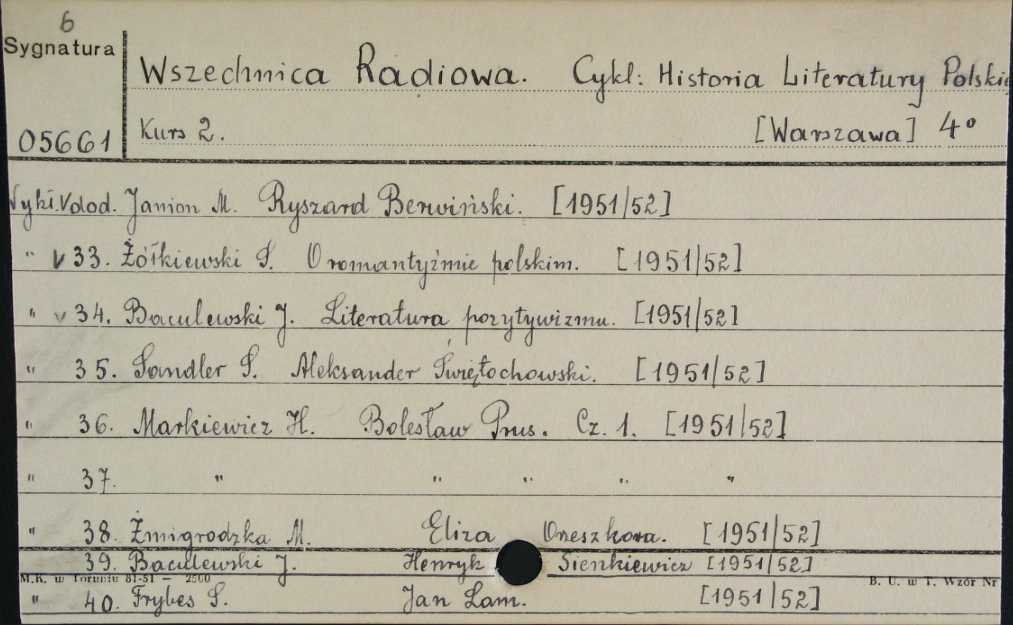 6
Sygnatura
Wszechnica Radiowa. Cykl: Historia Literatury Polskiej
05661 Kurs 2. [Warszawa] 4°
Wykł. Janion M. Ryszard Berwiński. [1951/52]
" V 33. Żółkiewski S. O romantyźmie polskim. [1951/52]
" v 34. Baculewski J. Literatura pozytywizmu. [1951/52]
" 35. Sandler S. Aleksander Świętochowski. [1951/52]
" 36. Markiewicz H. Bolesław Prus. Cz. 1. [1951/52]
" 37. " " " " "
" 38. Żmigrodzka M. Eliza Orzeszkowa. [1951/52]
39. Baculewski J. Henryk Sienkiewicz [1951/52]
M.K. w Toruniu 81-51 — 2500 B. U. w T. Wzór Nr
" 40. Frybes S. Jan Lam. [1951/52]